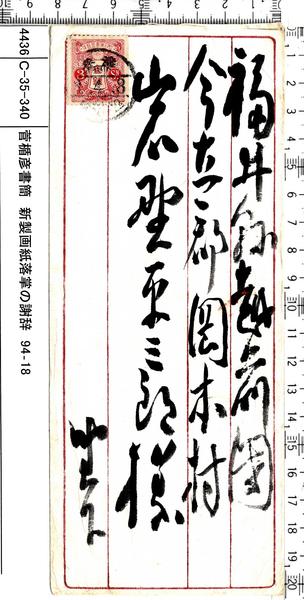 福井縣越前國
今立郡岡本村
岩野平三郎様
4436 C-35-340
菅楯彦書簡 新製画紙落掌の謝辞 94-18